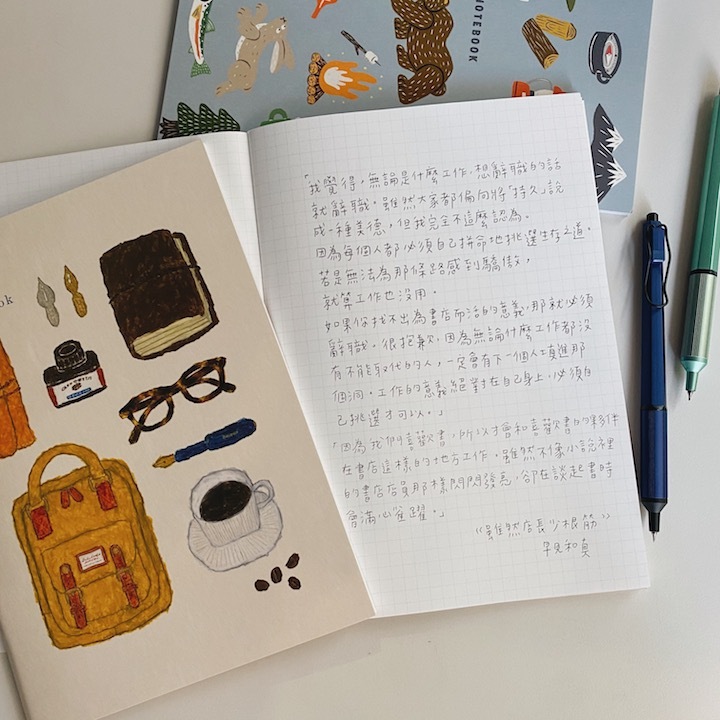 NOTEBOOK
「我覺得，無論是什麼工作，想辭職的話
就辭職。雖然大家都偏向將「持久」說
成一種美德，但我完全不這麼認為。
因為每個人都必須自己拼命地挑選生存之道。
若是無法為那條路感到驕傲，
就算工作也沒用。
如果你找不出為書店而活的意義，那就必須
辭職。很抱歉，因為無論什麼工作都沒
有不能取代的人，一定會有下一個人填進那
個洞。工作的意義絕對在自己身上，必須自
己挑選才可以。」
「因為我們喜歡書，所以才會和喜歡書的夥伴
在書店這樣的地方工作。雖然不像小說裡
的書店店員那樣閃閃發亮，卻在談起書時
會滿心雀躍。」
《雖然店長少根筋》
早見和真
ok